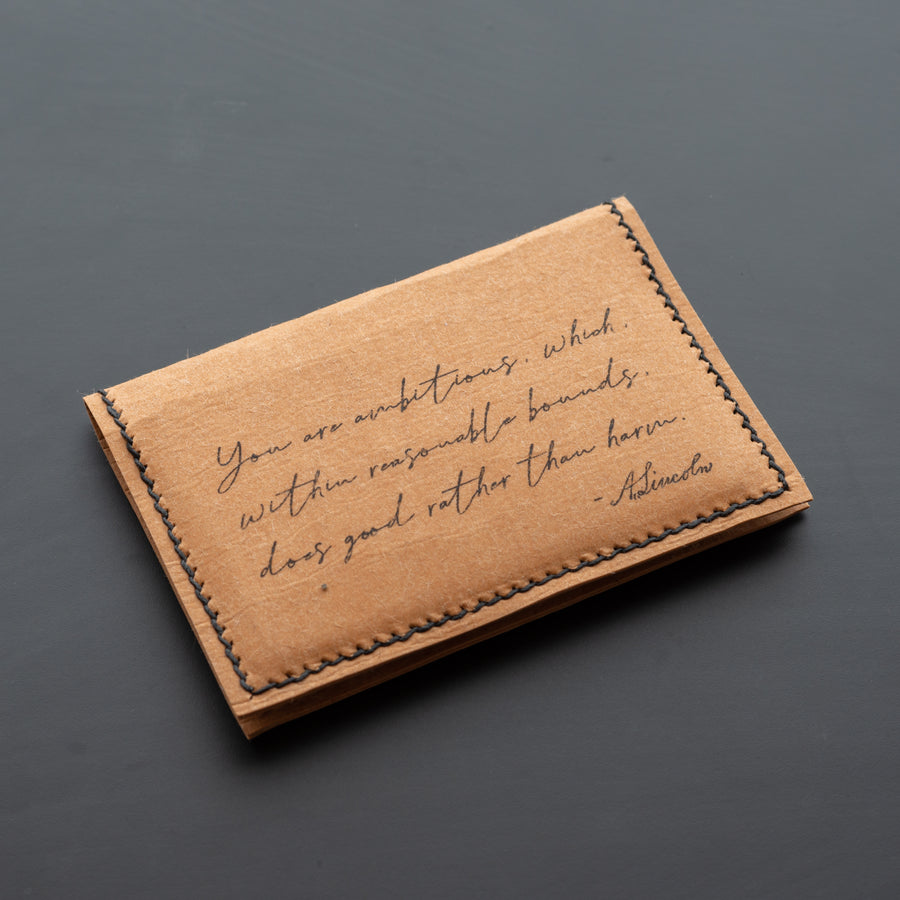 You are ambitious, which,
within reasonable bounds,
does good rather than harm.
- A.Lincoln